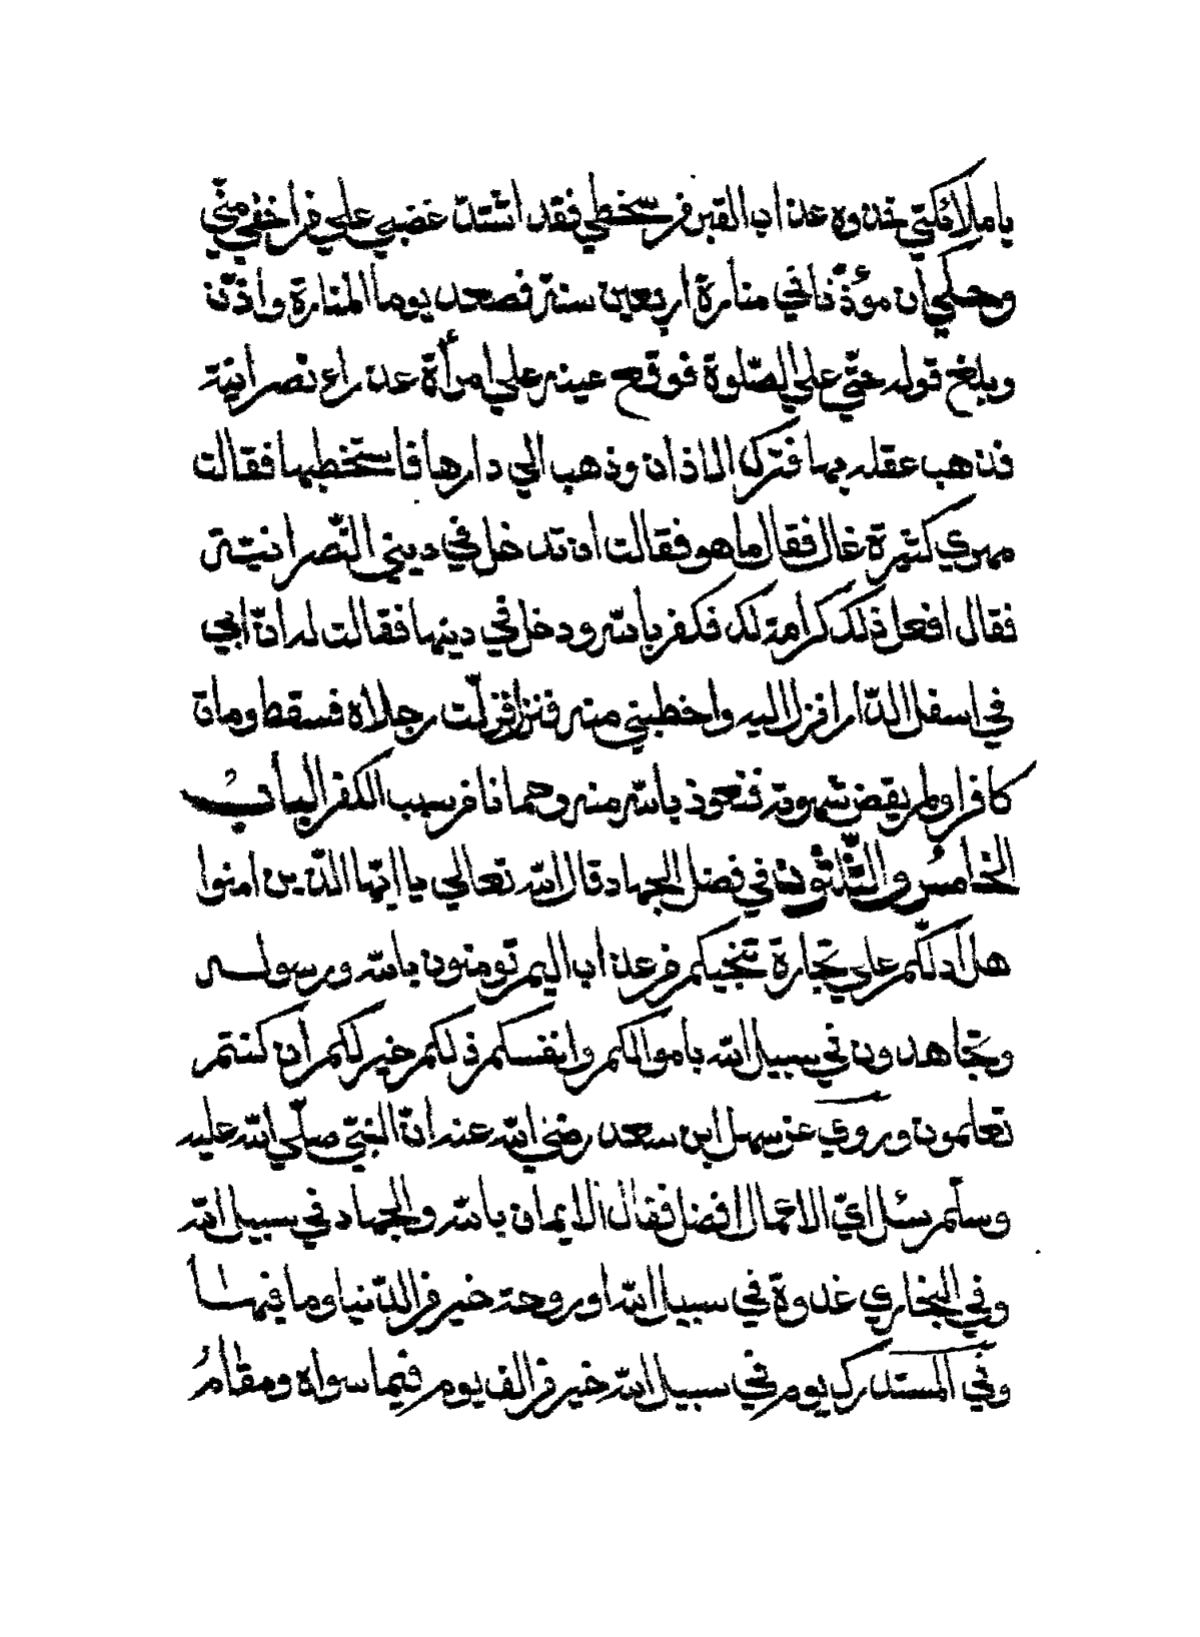 يا ملائكتي خذوه عذاب القبر من سخطي فقد اشتدّ غضبي علي من اخفي منّي
وحكي ان مؤذّنا في منارة اربعين سنة فصعد يوما المنارة واذّن
وبلغ قوله حتّي علي الصّلوة فوقع عينه علي امرأة عذراء نصرانيّة
فذهب عقله بها فترك الاذان وذهب الي دارها فاستخطبها فقالت
مهري كثيرة غال فقال ما هو فقالت ان تدخل في ديني النّصرانيّة
فقال افعل ذلك كرامة لك فكفر بالله ودخل في دينها فقالت له انّ ابي
في اسفل الدّار انزل اليه واخطبني منه فنزل فزلّت رجلاه فسقط ومات
كافرا ولم يقض شهوته فنعوذ بالله منه وحمانا من سبب الكفر الباب
الخامس والثّلثون في فضل الجهاد قال الله تعالي يا ايّها الّذين امنوا
هل ادلّكم علي تجارة تنجيكم من عذاب اليم تومنون بالله ورسوله
وتجاهدون في سبيل الله باموالكم وانفسكم ذلكم خير لكم ان كنتم
تعلمون وروي عن سهل ابن سعد رضي الله عنه انّ النّبيّ صلّي الله عليه
وسلّم سئل ايّ الاعمال افضل فقال الايمان بالله والجهاد في سبيل الله
وفي البخاري غدوة في سبيل الله او روحة خير من الدّنيا وما فيها
وفي المستدرك يوم في سبيل الله خير من الف يوم فيما سواه ومقام